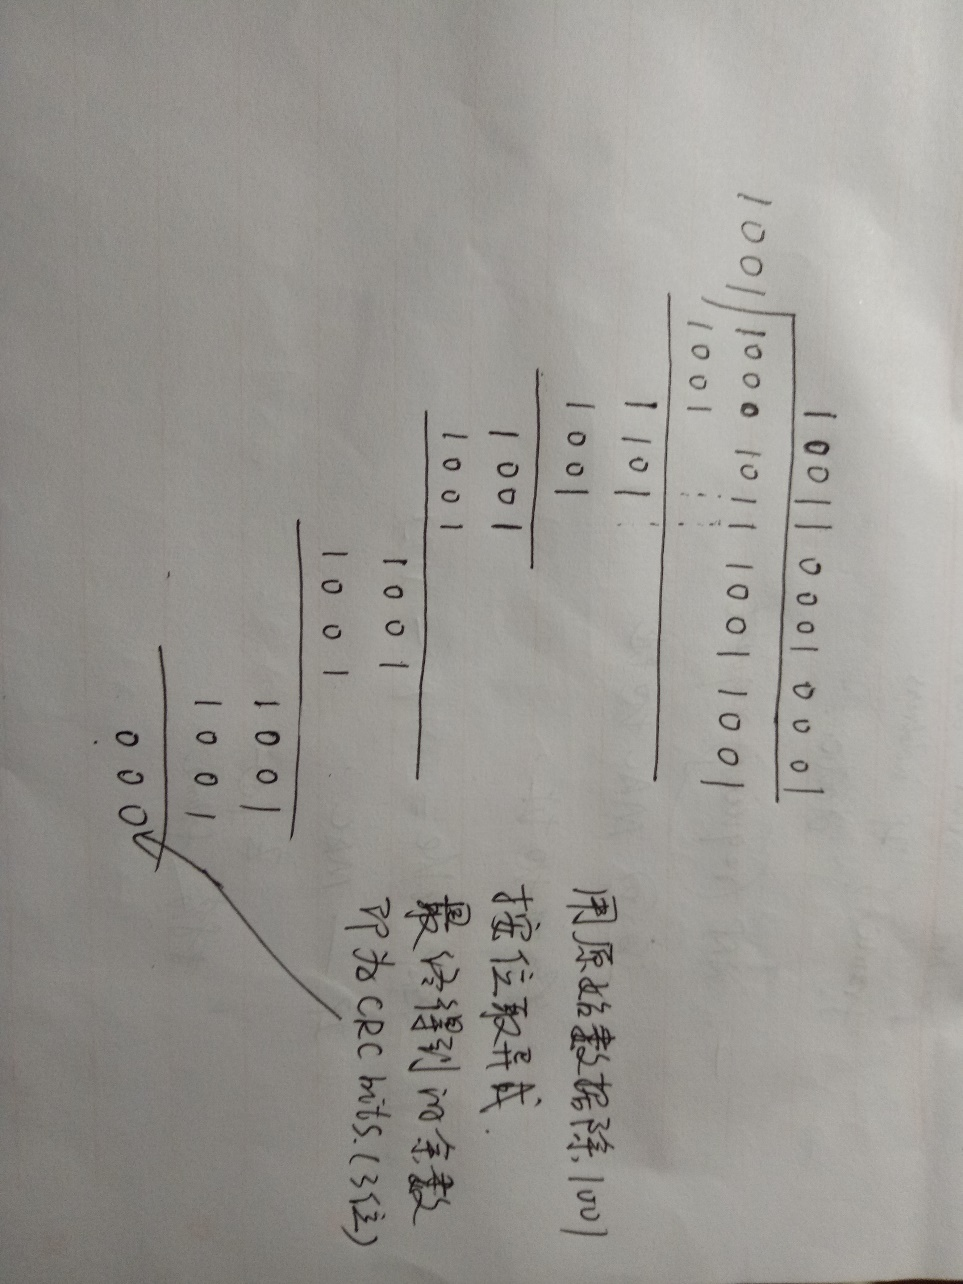 1001100010001
1001 1000 1011 1001 1001
1001
1101
1001
1001
1001
1001
1001
1001
1001
000
用原始数据除1001
按位取异或.
最终得到的余数
即为CRC bits.(3位)